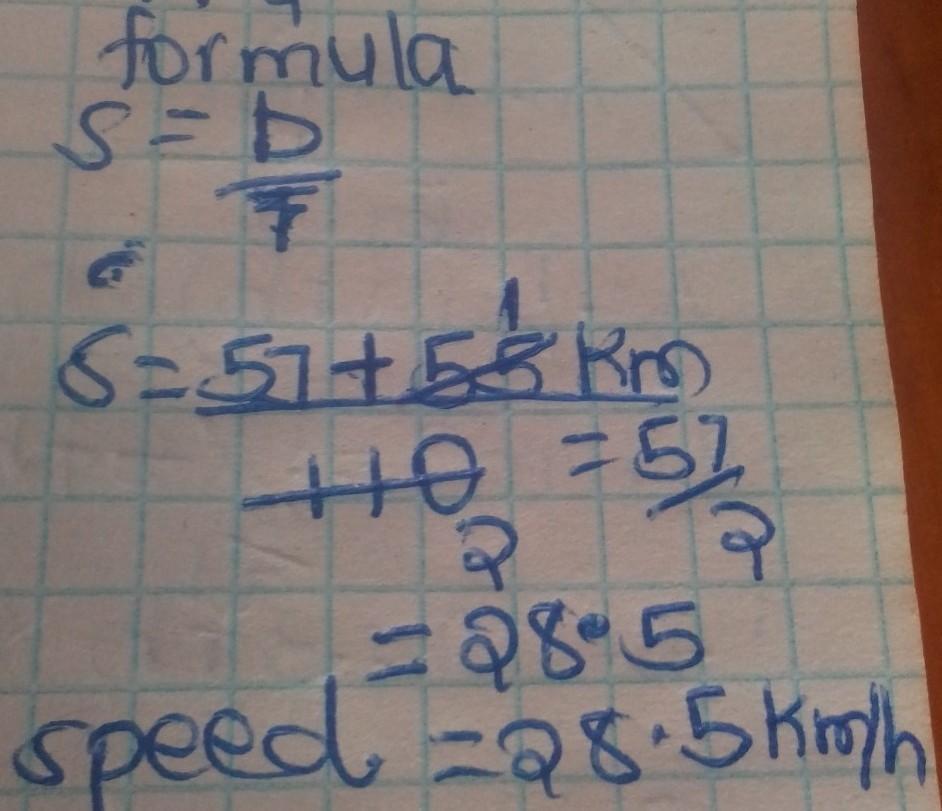 formula
S = D
T
1
S = 57 + 55 Km
110 = 57/2
2
= 28.5
speed = 28.5 Km/h